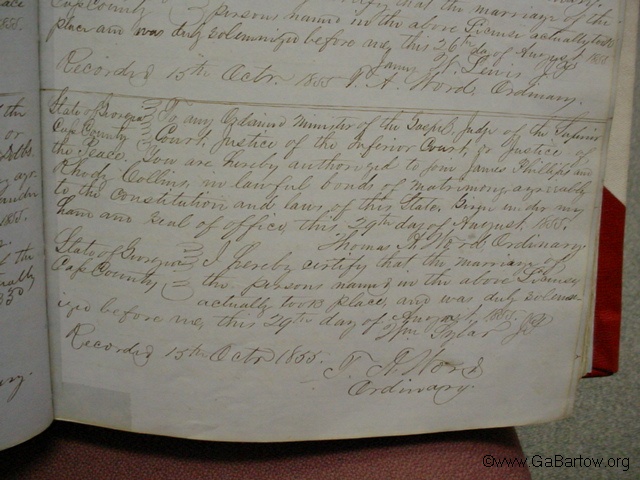 persons named in the above License actually took
place and was duly solemnized before me, this 26th day of August 1855
James W. Lewis JP
Recorded 15th Octr. 1855 T. A. Word Ordinary.
State of Georgia
Cass County
To any Ordained Minister of the Gospel, Judge of the Superior
Court, Justice of the Inferior Court, or Justice of
the Peace. You are hereby authorized to join James Phillips and
Rhody Collins, in lawful bonds of Matrimony, agreeably
to the Constitution and laws of this State. Given under my
hand and seal of office, this 29th day of August, 1855.
Thomas A. Word Ordinary
State of Georgia
Cass County
I hereby certify that the marriage of
the persons named in the above License
actually took place, and was duly solemn
ized before me, this 29th day of August, 1855.
Wm. Tylar JP
Recorded 15th Octr 1855.
T. A. Word
Ordinary.
©www.GaBartow.org